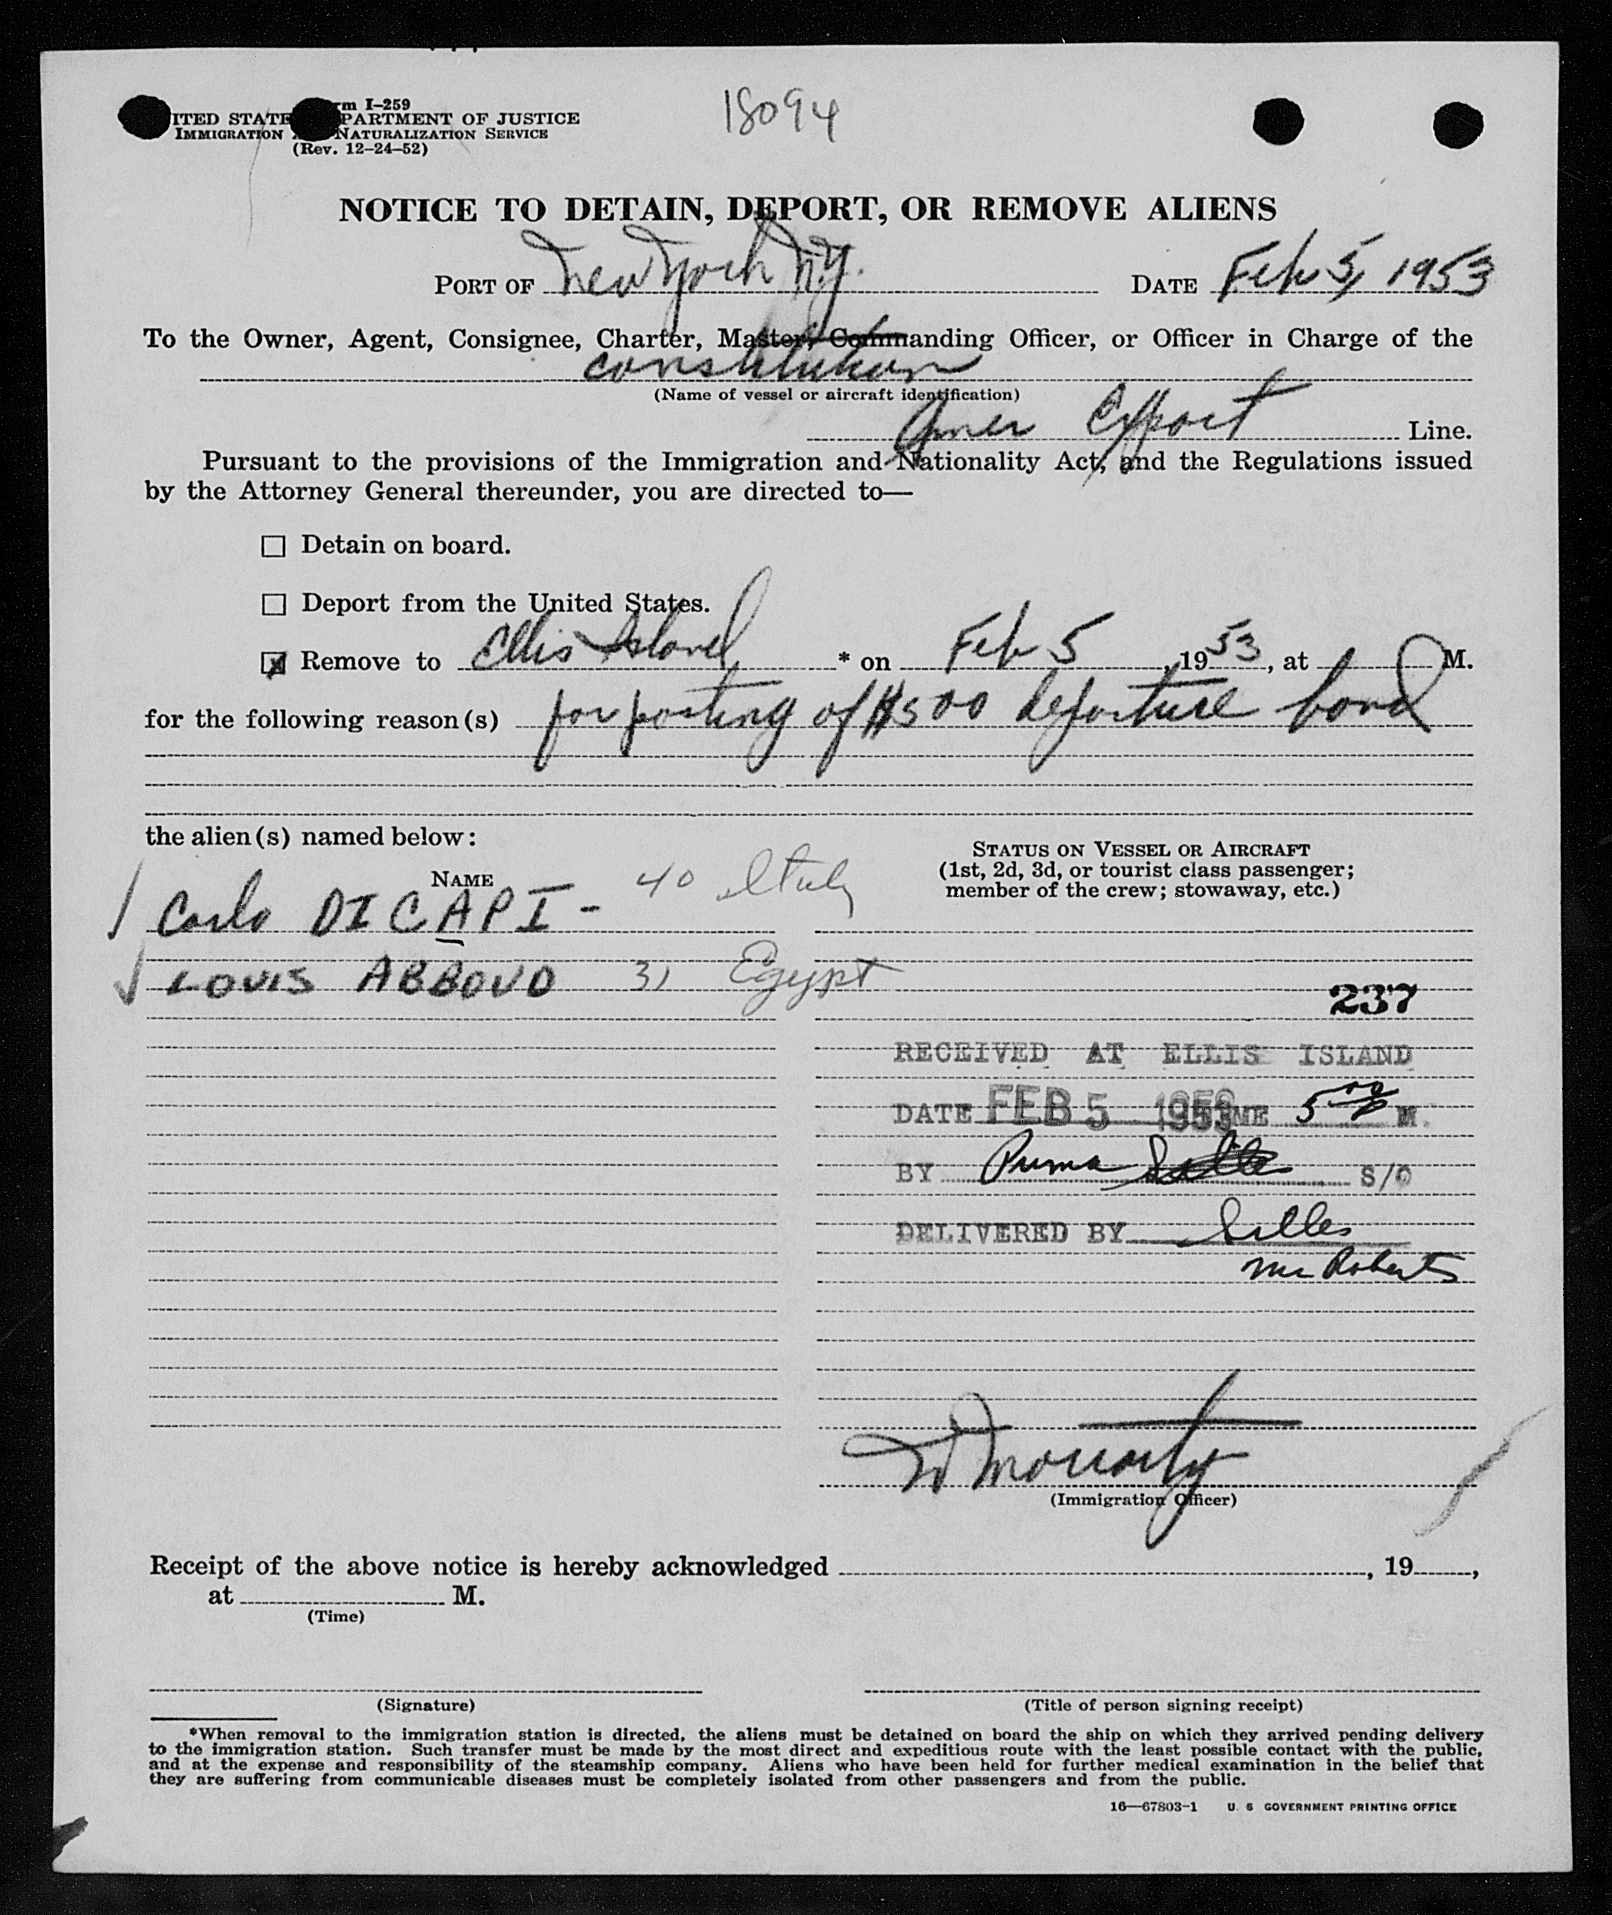 18094
Form I-259
UNITED STATES DEPARTMENT OF JUSTICE
IMMIGRATION AND NATURALIZATION SERVICE
(Rev. 12-24-52)
NOTICE TO DETAIN, DEPORT, OR REMOVE ALIENS
PORT OF New York N.Y. DATE Feb 5, 1953
To the Owner, Agent, Consignee, Charter, Master, Commanding Officer, or Officer in Charge of the
Constitution
(Name of vessel or aircraft identification)
Amer Export Line.
Pursuant to the provisions of the Immigration and Nationality Act, and the Regulations issued
by the Attorney General thereunder, you are directed to—
☐ Detain on board.
☐ Deport from the United States.
☒ Remove to Ellis Island * on Feb 5, 1953, at M.
for the following reason(s) for posting of $500 departure bond
the alien(s) named below:
NAME
STATUS ON VESSEL OR AIRCRAFT
(1st, 2d, 3d, or tourist class passenger;
member of the crew; stowaway, etc.)
Carlo DICAPI - 40 Italy
LOUIS ABBOUD 31 Egypt
237
RECEIVED AT ELLIS ISLAND
DATE FEB 5 1953 TIME 5 00 P M.
BY Puma S/O
DELIVERED BY Salles
Mc Roberts
Moriarty
(Immigration Officer)
Receipt of the above notice is hereby acknowledged , 19 ,
at M.
(Time)
(Signature) (Title of person signing receipt)
*When removal to the immigration station is directed, the aliens must be detained on board the ship on which they arrived pending delivery
to the immigration station. Such transfer must be made by the most direct and expeditious route with the least possible contact with the public,
and at the expense and responsibility of the steamship company. Aliens who have been held for further medical examination in the belief that
they are suffering from communicable diseases must be completely isolated from other passengers and from the public.
16—67803-1 U. S GOVERNMENT PRINTING OFFICE